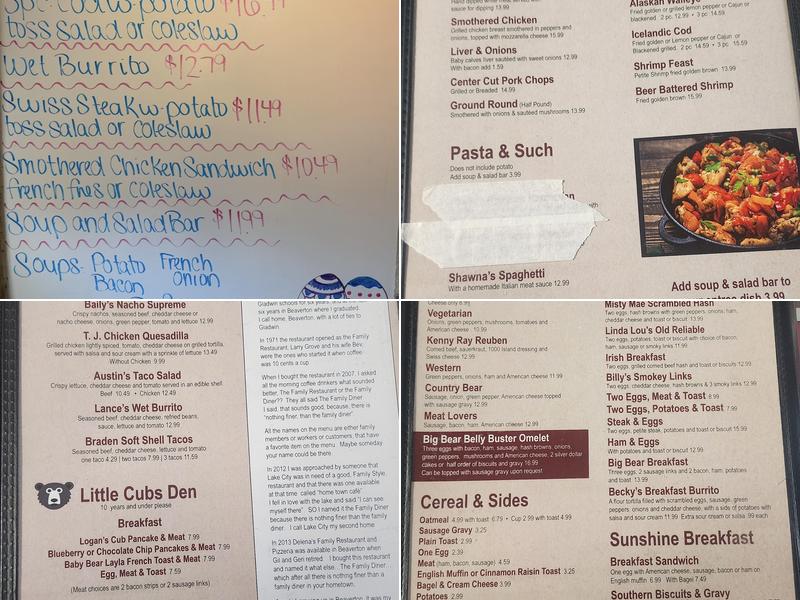 toss salad or coleslaw
Wet Burrito $12.79
Swiss Steak w-potato $11.49
toss salad or coleslaw
Smothered Chicken Sandwich $10.49
french fries or coleslaw
Soup and Salad Bar $11.99
Soups- Potato French
Bacon Onion
Smothered Chicken
Grilled chicken breast smothered in peppers and
onions, topped with mozzarella cheese 15.99
Liver & Onions
Baby calves liver sautéed with sweet onions 12.99
With bacon add 1.59
Center Cut Pork Chops
Grilled or Breaded 14.99
Ground Round (Half Pound)
Smothered with onions & sautéed mushrooms 13.99
Pasta & Such
Does not include potato
Add soup & salad bar 3.99
Shawna's Spaghetti
With a homemade Italian meat sauce 12.99
Alaskan Walleye
Fried golden or grilled lemon pepper or Cajun or
blackened 2 pc. 12.99 • 3 pc. 14.59
Icelandic Cod
Fried golden or Lemon pepper or Cajun or
Blackened grilled. 2 pc 14.59 • 3 pc. 15.59
Shrimp Feast
Petite Shrimp fried golden brown 13.99
Beer Battered Shrimp
Fried golden brown 15.99
Add soup & salad bar to
Baily's Nacho Supreme
Crispy nachos, seasoned beef, cheddar cheese or
nacho cheese, onions, green pepper, tomato and lettuce 12.99
T. J. Chicken Quesadilla
Grilled chicken lightly spiced, tomato, cheddar cheese on grilled tortilla,
served with salsa and sour cream with a sprinkle of lettuce 13.49
Without Chicken 9.99
Austin's Taco Salad
Crispy lettuce, cheddar cheese and tomato served in an edible shell.
Beef 10.49 • Chicken 12.49
Lance's Wet Burrito
Seasoned beef, cheddar cheese, refried beans,
sauce, lettuce and tomato 12.99
Braden Soft Shell Tacos
Seasoned beef, cheddar cheese, lettuce and tomato
one taco 4.29 | two tacos 7.99 | 3 tacos 11.59
Little Cubs Den
10 years and under please
Breakfast
Logan's Cub Pancake & Meat 7.99
Blueberry or Chocolate Chip Pancakes & Meat 7.99
Baby Bear Layla French Toast & Meat 7.99
Egg, Meat & Toast 7.59
(Meat choices are 2 bacon strips or 2 sausage links)
six years in Beaverton where I graduated.
I call home. Beaverton, with a lot of ties to
Gladwin.
In 1971 the restaurant opened as the Family
Restaurant, Larry Grove and his wife Bev,
were the ones who started it when coffee
was 10 cents a cup.
When I bought the restaurant in 2007, I asked
all the morning coffee drinkers what sounded
better, The Family Restaurant or the Family
Diner?? They all said The Family Diner.
I said, that sounds good, because, there is
"nothing finer, than the family diner".
All the names on the menu are either family
members or workers or customers, that have
a favorite item on the menu. Maybe someday
your name could be there.
In 2012 I was approached by someone that
Lake City was in need of a good, Family Style,
restaurant and that there was one available
at that time called "home town cafe"
I fell in love with the lake and said "I can see
myself there". SO I named it the Family Diner
because there is nothing finer than the family
diner. I call Lake City my second home.
In 2013 Delena's Family Restaurant and
Pizzeria was available in Beaverton when
Gil and Geri retired. I bought this restaurant
and named it what else. The Family Diner
which after all there is nothing finer than a
family diner in your hometown.
Vegetarian
Onions, green peppers, mushrooms, tomatoes and
American cheese 10.99
Kenny Ray Reuben
Corned beef, sauerkraut, 1000 Island dressing and
Swiss cheese 12.99
Western
Green peppers, onions, ham and American cheese 11.99
Country Bear
Sausage, onion, green pepper, American cheese topped
with sausage gravy 12.99
Meat Lovers
Sausage, bacon, ham, American cheese 12.99
Big Bear Belly Buster Omelet
Three eggs with bacon, ham, sausage, hash browns, onions,
green peppers, mushrooms and American cheese, 2 silver dollar
cakes or half order of biscuits and gravy 16.99
Can be topped with sausage gravy upon request
Cereal & Sides
Oatmeal 4.99 with toast 6.79 • Cup 2.99 with toast 4.99
Sausage Gravy 3.25
Plain Toast 2.99
One Egg 2.39
Meat (ham, bacon, sausage) 4.59
English Muffin or Cinnamon Raisin Toast 3.25
Bagel & Cream Cheese 3.99
Potatoes 2.99
Misty Mae Scrambled Hash
Two eggs, hash browns with green peppers, onions, ham,
cheddar cheese and toast or biscuit 13.99
Linda Lou's Old Reliable
Two eggs, potatoes, toast or biscuit with choice of bacon,
ham, sausage or smoky links 11.99
Irish Breakfast
Two eggs, grilled corned beef hash and toast or biscuit 12.99
Billy's Smokey Links
Two eggs, cheddar cheese, hash browns & 3 smoky links 12.99
Two Eggs, Meat & Toast 8.99
Two Eggs, Potatoes & Toast 7.99
Steak & Eggs
Two eggs, petite steak, potatoes and toast or biscuit 15.99
Ham & Eggs
With potatoes and toast or biscuit 12.99
Big Bear Breakfast
Three eggs, 2 sausage links and 2 bacon, ham, potatoes
and toast 13.99
Becky's Breakfast Burrito
A flour tortilla filled with scrambled eggs, sausage, green
peppers, onions and cheddar cheese, with a side of potatoes with
salsa and sour cream 11.99 Extra sour cream or salsa .99 each
Sunshine Breakfast
Breakfast Sandwich
One egg with American cheese, sausage, bacon or ham on
English muffin 6.99 With Bagel 7.49
Southern Biscuits & Gravy